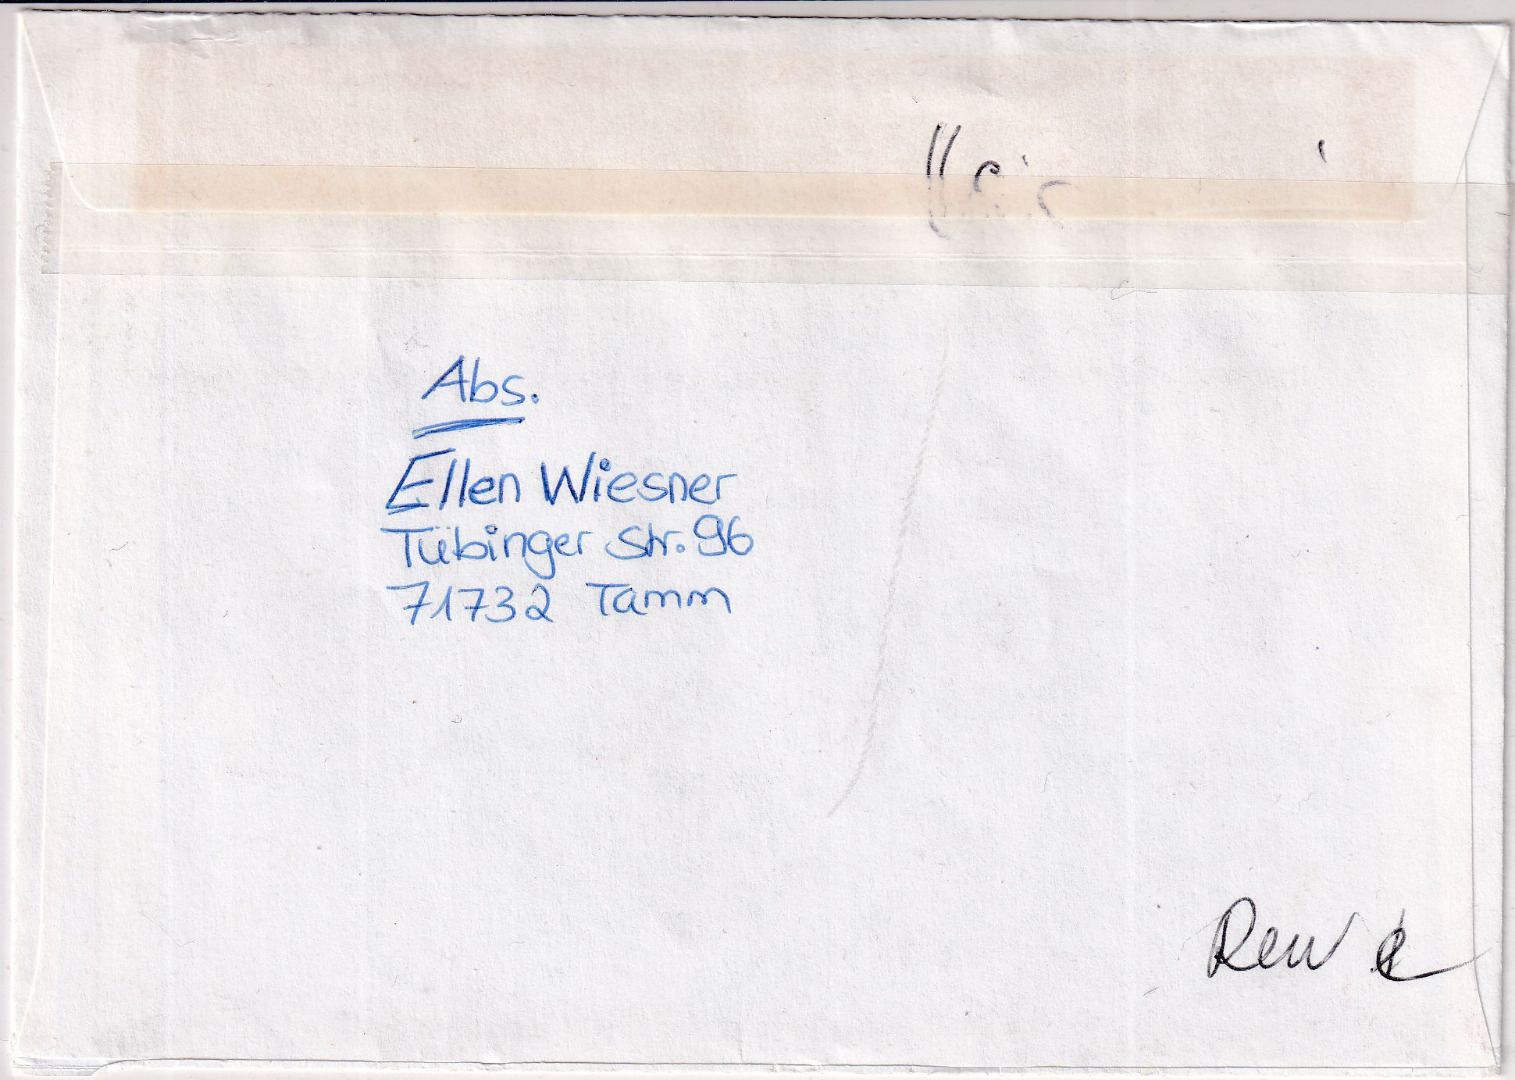 Abs.
Ellen Wiesner
Tübinger Str. 96
71732 Tamm